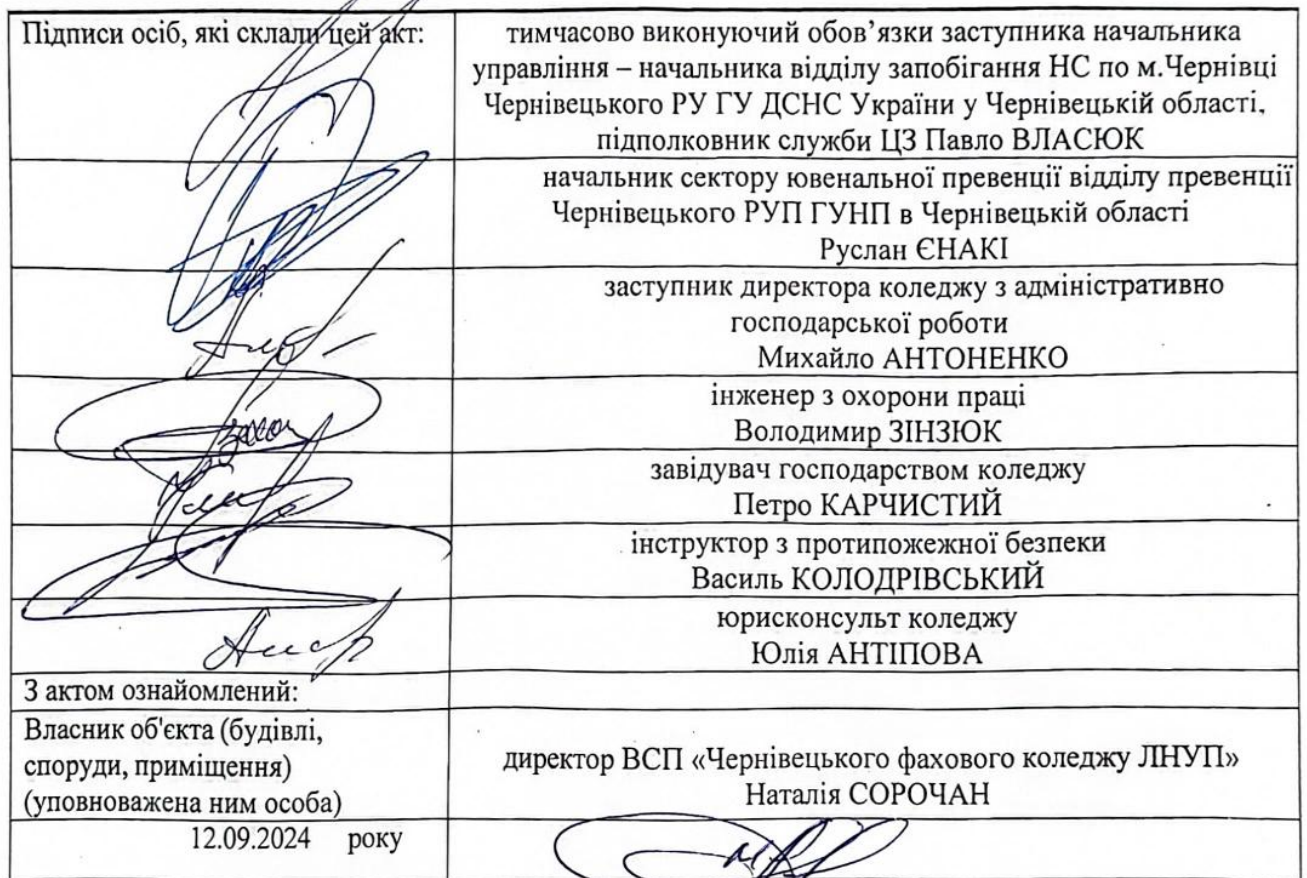 Підписи осіб, які склали цей акт:
тимчасово виконуючий обов’язки заступника начальника
управління – начальника відділу запобігання НС по м.Чернівці
Чернівецького РУ ГУ ДСНС України у Чернівецькій області,
підполковник служби ЦЗ Павло ВЛАСЮК
начальник сектору ювенальної превенції відділу превенції
Чернівецького РУП ГУНП в Чернівецькій області
Руслан ЄНАКІ
заступник директора коледжу з адміністративно
господарської роботи
Михайло АНТОНЕНКО
інженер з охорони праці
Володимир ЗІНЗЮК
завідувач господарством коледжу
Петро КАРЧИСТИЙ
інструктор з протипожежної безпеки
Василь КОЛОДРІВСЬКИЙ
юрисконсульт коледжу
Юлія АНТІПОВА
З актом ознайомлений:
Власник об'єкта (будівлі,
споруди, приміщення)
(уповноважена ним особа)
директор ВСП «Чернівецького фахового коледжу ЛНУП»
Наталія СОРОЧАН
12.09.2024 року